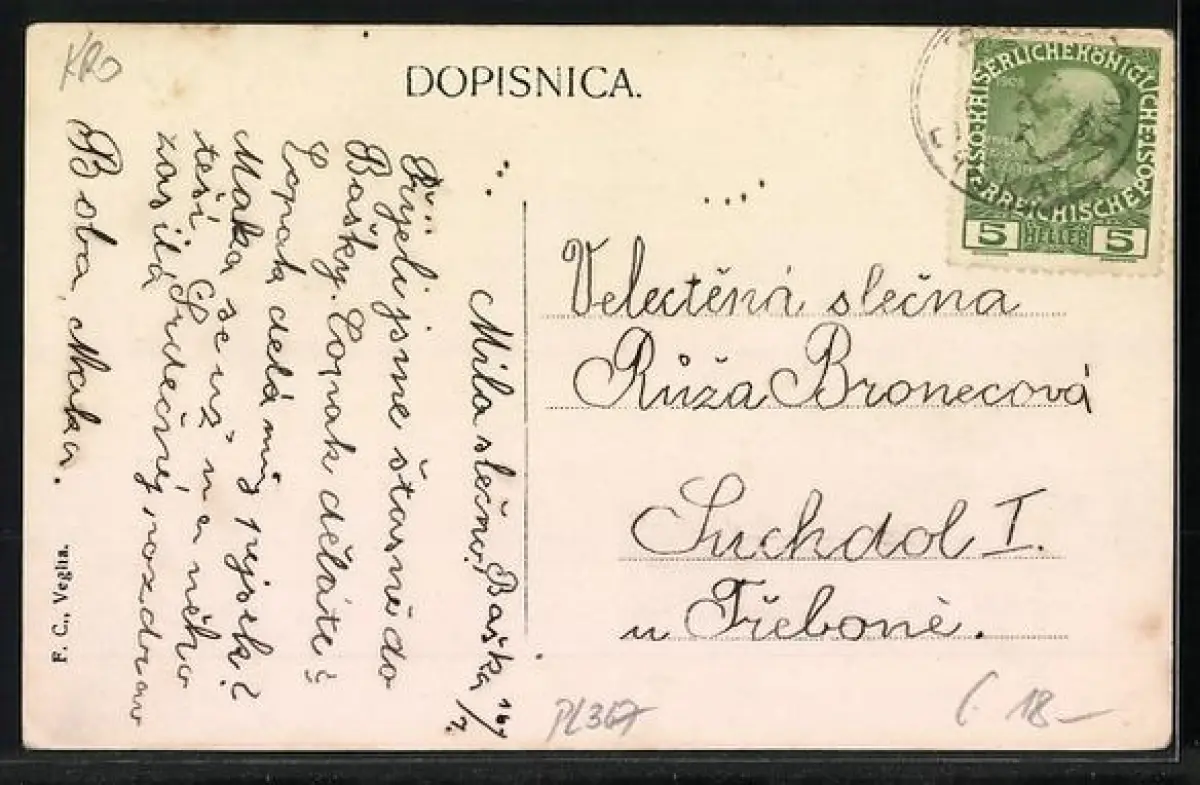 KRO
DOPISNICA.
KAISERLICHE KÖNIGLICHE
ÖSTERREICHISCHE POST
1908
5 HELLER 5
Baška 16/7.
Milá slečno!
Přijeli jsme šťastně do
Bašky. Copak děláte?
Copak dělá můj pejsek?
Maka se už na něho
těší. Srdečný pozdrav
zasílá
Boba, Maka.
Velectěná slečna
Růža Bronecová
Suchdol I.
u Třeboně.
F. C., Veglia.
PL367
18—